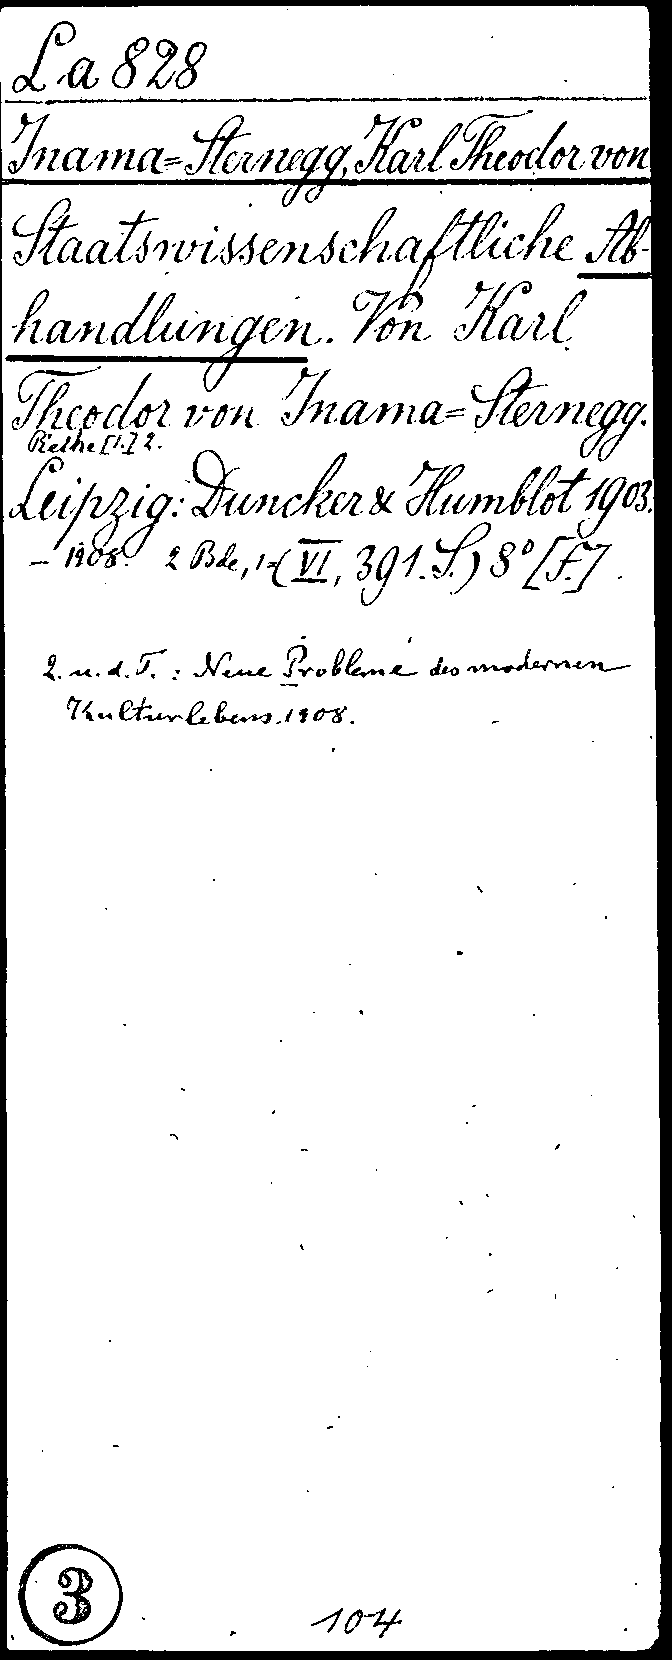 La 828
Inama=Sternegg, Karl Theodor von
Staatswissenschaftliche Ab-
handlungen. Von Karl
Theodor von Inama=Sternegg.
Reihe [1.] 2.
Leipzig: Duncker & Humblot 1903.
– 1908. 2 Bde, 1=(VI, 391. S.) 8° [F.]
2. u. d. T.: Neue Probleme des modernen
Kulturlebens. 1908.
3
104